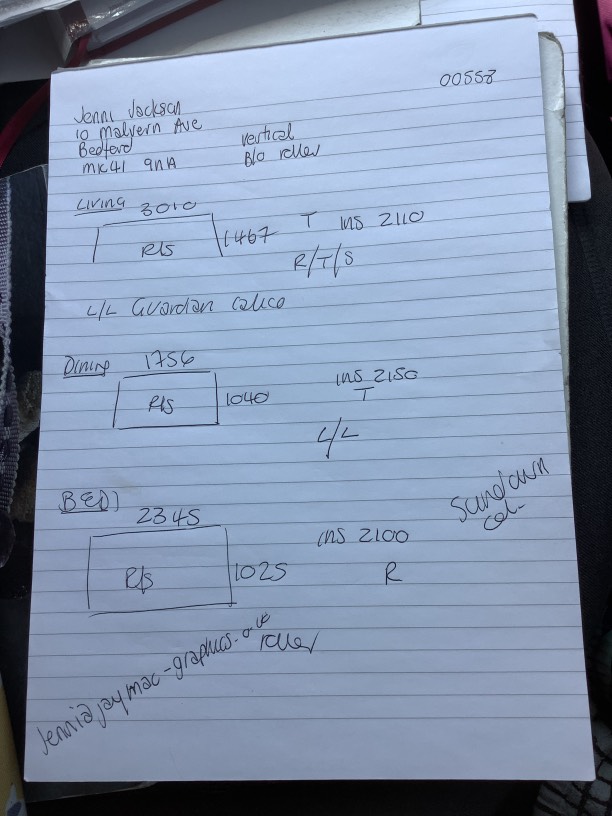 00558
Jenni Jackson
10 Malvern Ave
Bedford
MK41 9NA
Vertical
B/O roller
Living 3010
R/S 1467 T INS 2110
R/T/S
L/L Guardian Calico
Dining 1756
R/S 1040 INS 2150
T
L/L
BED 1
2345
R/S 1025 INS 2100
R
Sundown
Col-
roller